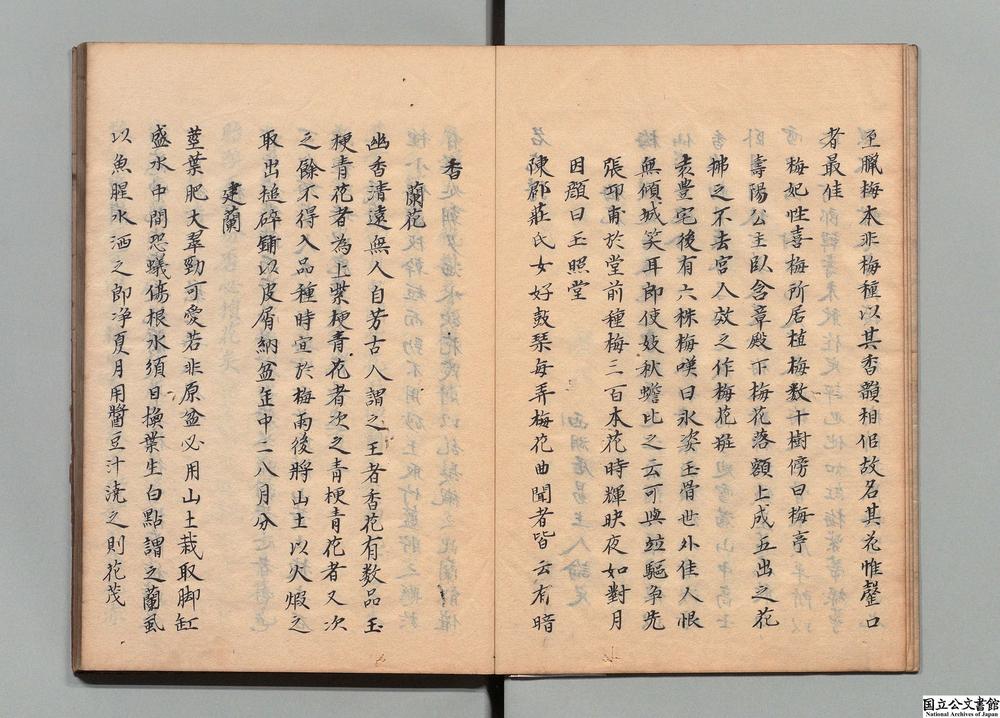 至臘梅本非梅種以其香韻相侣故名其花惟罄口
者最佳
梅妃性喜梅所居植梅数十樹傍曰梅亭
壽陽公主臥含章殿下梅花落額上成五出之花
拂之不去宮人效之作梅花粧
袁豊宅後有六株梅嘆曰氷姿玉骨世外佳人恨
無傾城笑耳即使妓秋蟾比之云可與竝驅争先
張功甫於堂前種梅三百本花時輝映夜如對月
因顔曰玉照堂
陳郡莊氏女好鼓琴每弄梅花曲聞者皆云有暗
香
蘭花
幽香清遠無人自芳古人謂之王者香花有数品玉
梗青花者為上紫梗青花者次之青梗青花者又次
之餘不得入品種時宜於梅雨後將山土以火煅之
取出槌碎鋪以皮屑納盆年中二八月分
建蘭
莖葉肥大翠勁可愛若非原盆必用山土栽取脚缸
盛水中間恐蟻傷根水須日換葉生白點謂之蘭虱
以魚腥水洒之即净夏月用醬豆汁澆之則花茂
国立公文書館
National Archives of Japan